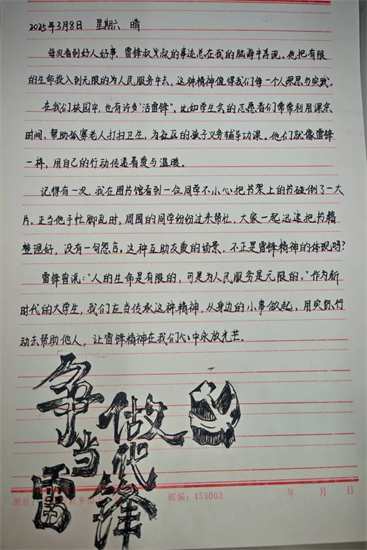 2025年3月8日 星期六 晴
每次看到好人好事,雷锋叔叔的事迹总在我的脑海中浮现。他把有限
的生命投入到无限的为人民服务中去,这种精神值得我们每一个人深思与实践。
在我们校园中,也有许多“活雷锋”。比如学生会的志愿者们常常利用课余
时间,帮助孤寡老人打扫卫生,为社区的孩子义务辅导功课。他们就像雷锋
一样,用自己的行动传递着爱与温暖。
记得有一次,我在图书馆看到一位同学不小心把书架上的书碰倒了一大
片。正当他手忙脚乱时,周围的同学纷纷过来帮忙,大家一起迅速把书籍
整理好,没有一句怨言。这种互助友爱的场景,不正是雷锋精神的体现吗?
雷锋曾说:“人的生命是有限的,可是为人民服务是无限的。”作为新
时代的大学生,我们应当传承这种精神,从身边的小事做起,用实际行
动去帮助他人,让雷锋精神在我们心中永放光芒。
争当
雷
做
代
锋
邮编:453003
年 月 日